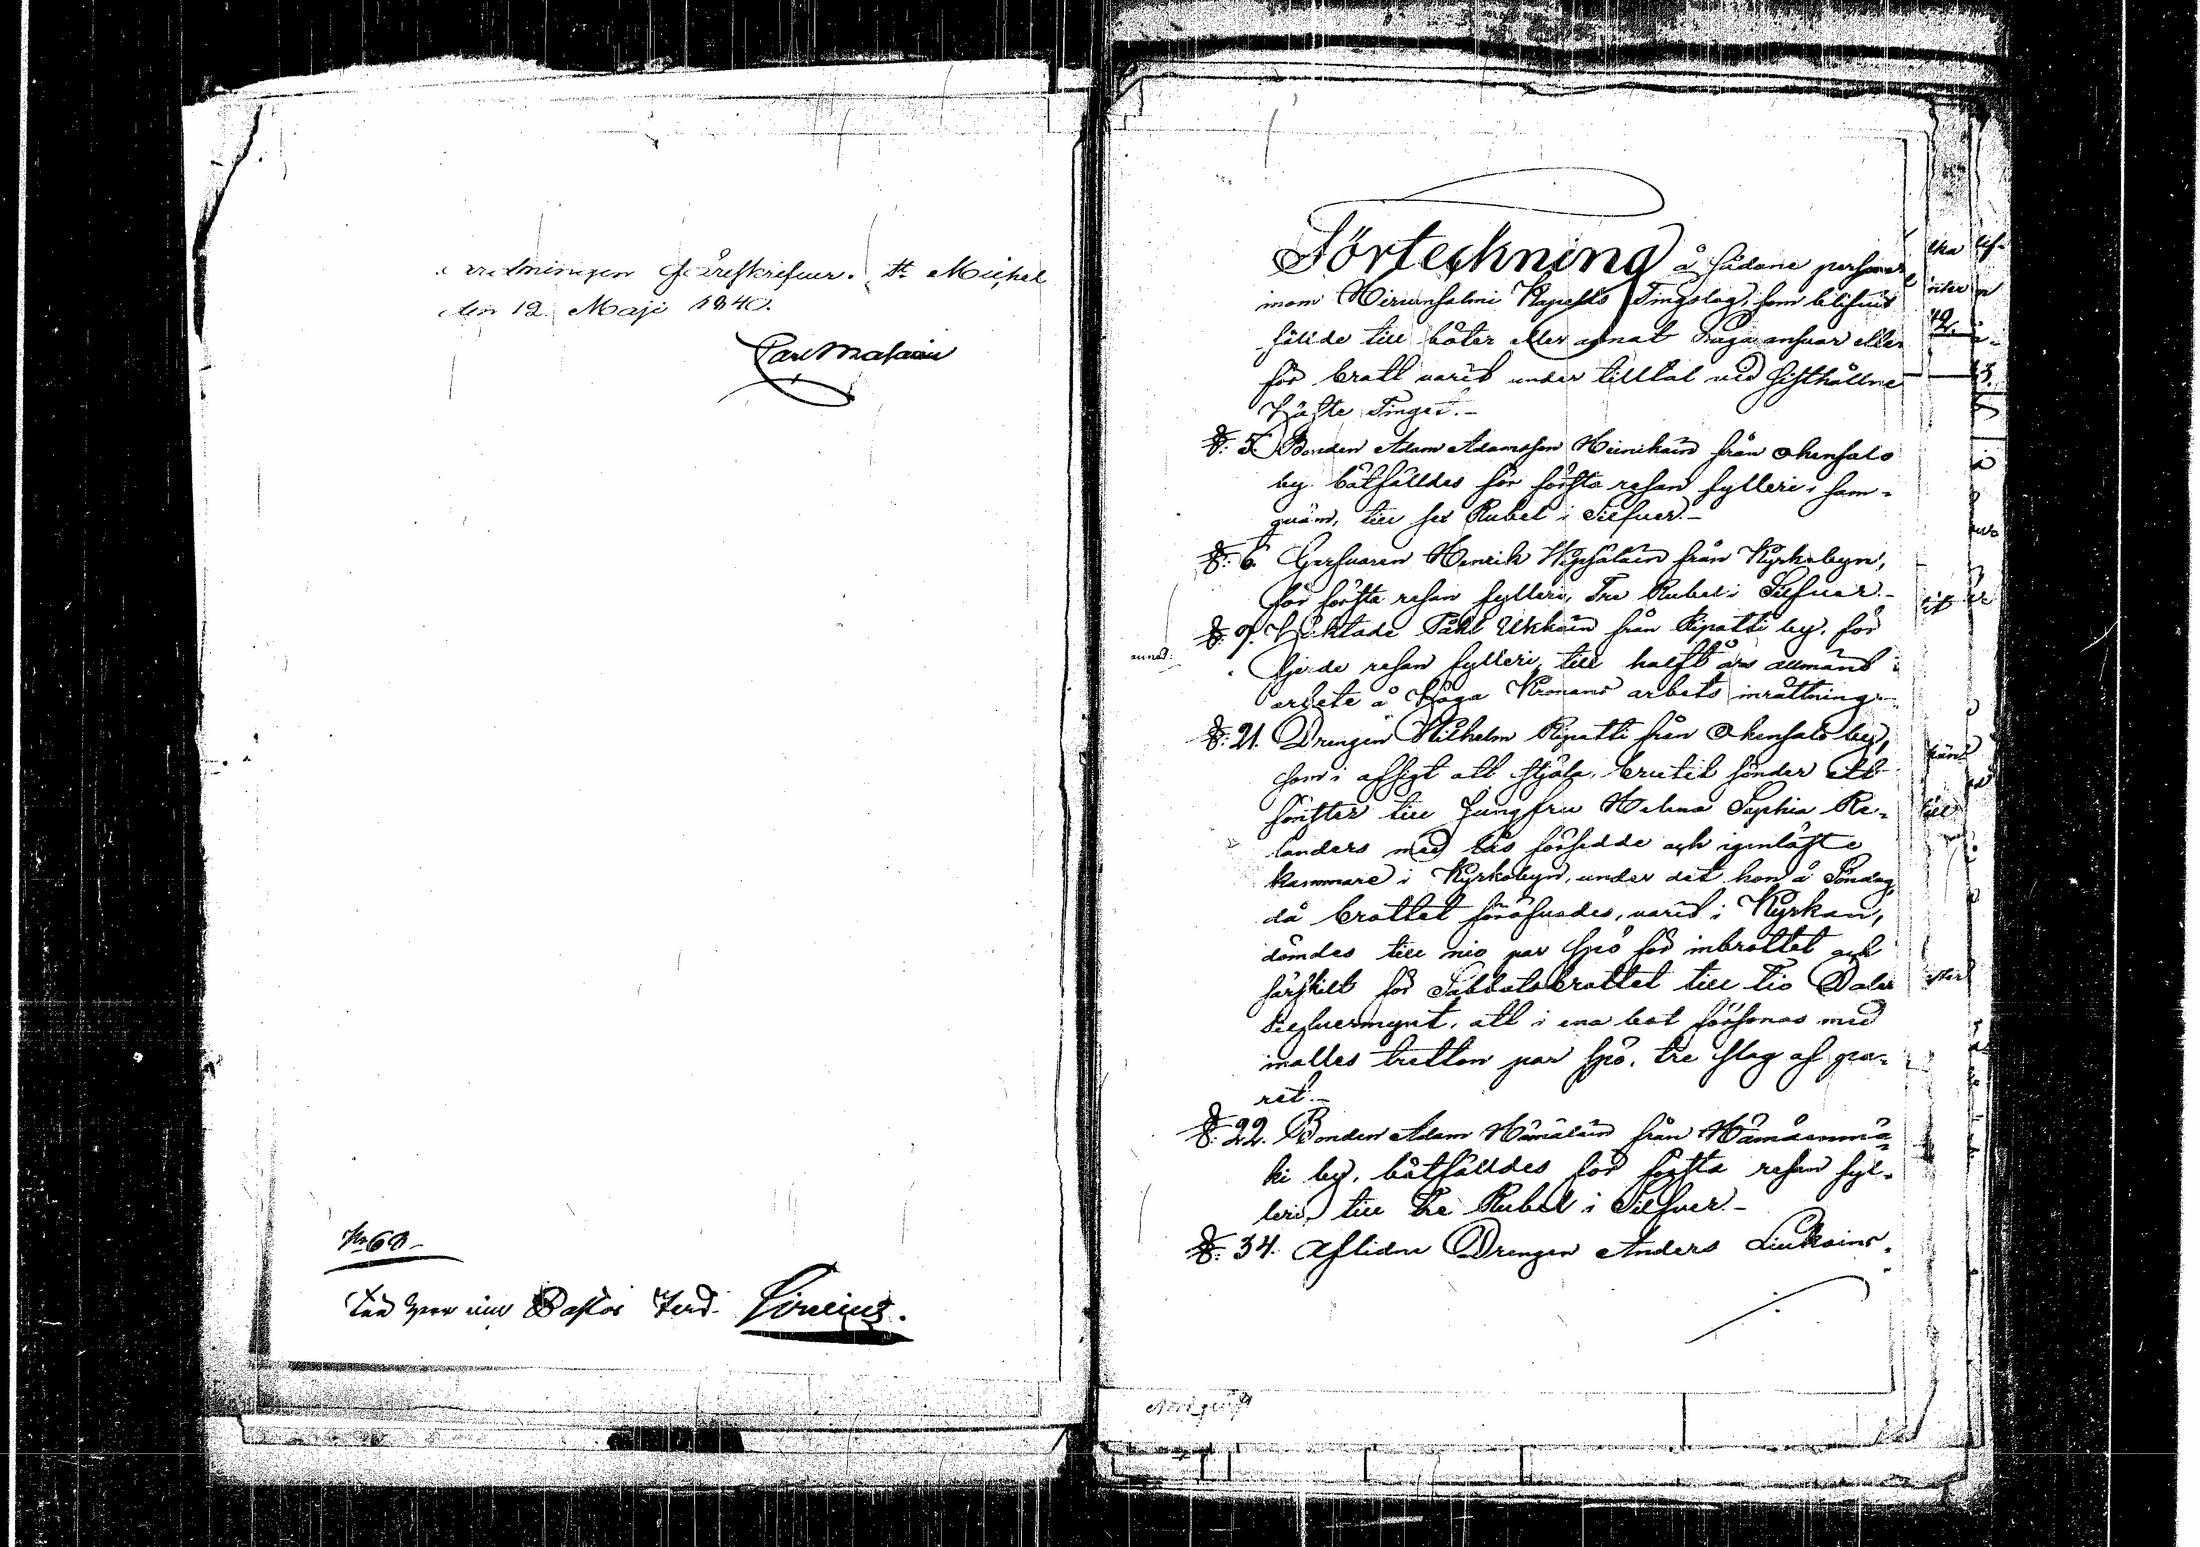 föreskrifver. St Michel
den 12 Maji 1840.
No 68
Pastor Ferd.
Förteckning å sådane personer
inom Hirvensalmi Kapells Tingslag, som blifvit
fällde till böter eller annat ansvar eller
för brott varit under tilltal vid sisthållne
Höste Tinget.-
§: 5. Bonden Adam Adamsson Heinikäin från Ohensalo
by. bötfälldes för första resan fylleri i sam-
qväm, till sex Rubel i Silfver.-
§: 6. Gerfvaren Henrik från Kyrkobyn,
för första resan fylleri, Tre Rubel i Silfver.-
§: 9. Häktade Påhl Ukkoin från Ripatti by. för
fjerde resan fylleri, till halft års allmänt
arbete å Höga Kronans arbets inrättning.-
§: 21. Drengen Wilhelm Ripatti från Ohensalo by,
som i afsigt att stjäla, brutit sönder ett
fönster till Jungfru Helena Sophia Re-
landers med lås försedde och igenlåste
kammare i Kyrkobyn, under det hon å Söndag,
då brottet föröfvades, varit i Kyrkan,
dömdes till nio par spö för inbrottet och
särskilt för Sabbatsbrottet till Tio Daler
Silfvermynt, att i ena bot försonas med
inalles tretton par spö, tre slag af pa-
ret.-
§: 22. Bonden Adam Hämäläin från Hämäänmä-
ki by, bötfälldes för första resan fyl-
leri, till Tre Rubel i Silfver.-
§: 34. Aflidne Drengen Anders Liukoins